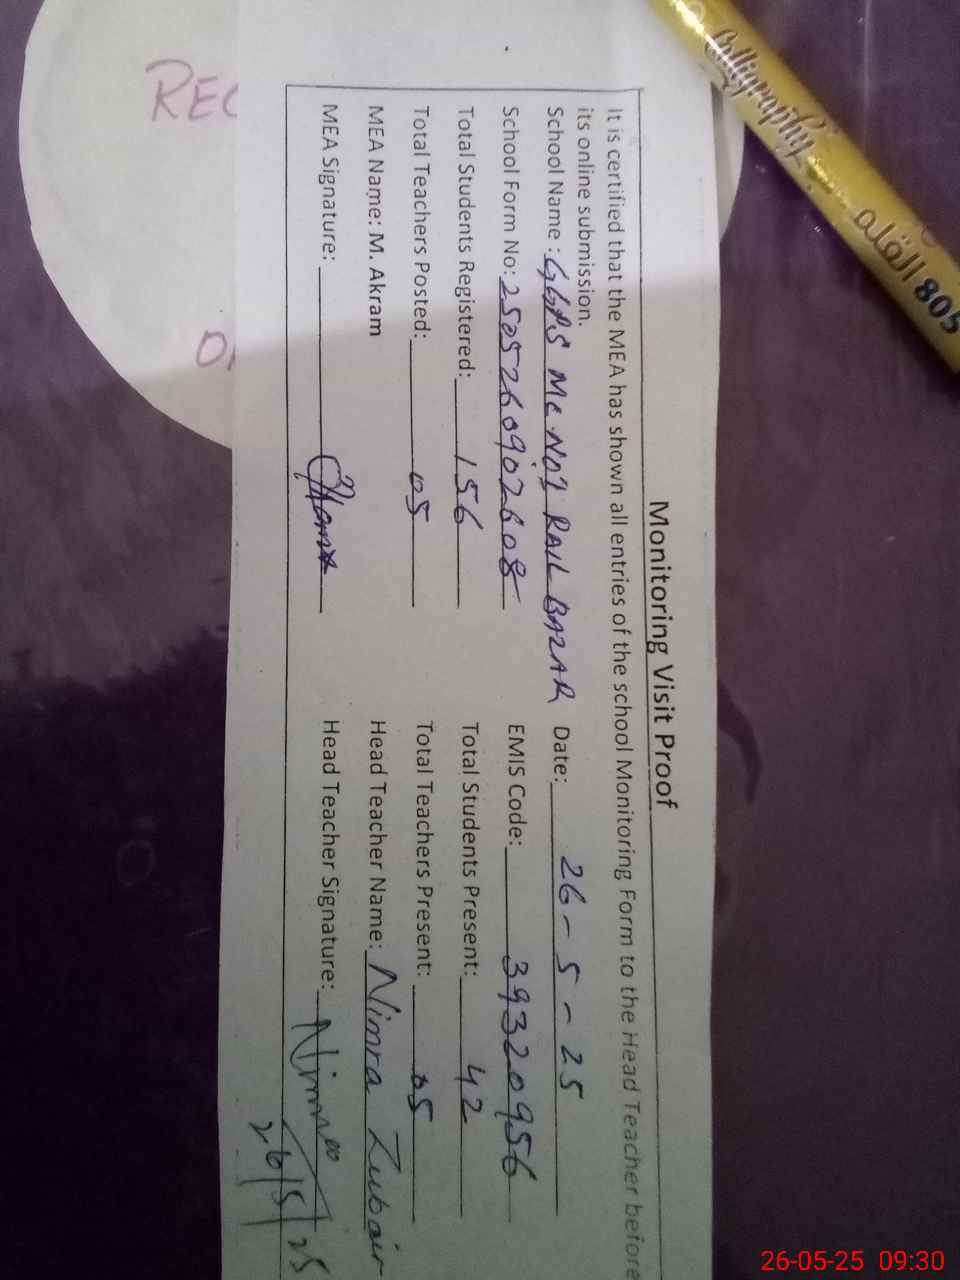 Monitoring Visit Proof
It is certified that the MEA has shown all entries of the school Monitoring Form to the Head Teacher before
its online submission.
School Name : GGPS MC NO1 RAIL BAZAR Date: 26-5-25
School Form No: 2505260902608 EMIS Code: 39320956
Total Students Registered: 156 Total Students Present: 42
Total Teachers Posted: 05 Total Teachers Present: 05
MEA Name: M. Akram Head Teacher Name: Nimra Zubair
MEA Signature: Head Teacher Signature: Nimra
26/5/25
Calligraphy
القلم 805
REC
26-05-25 09:30